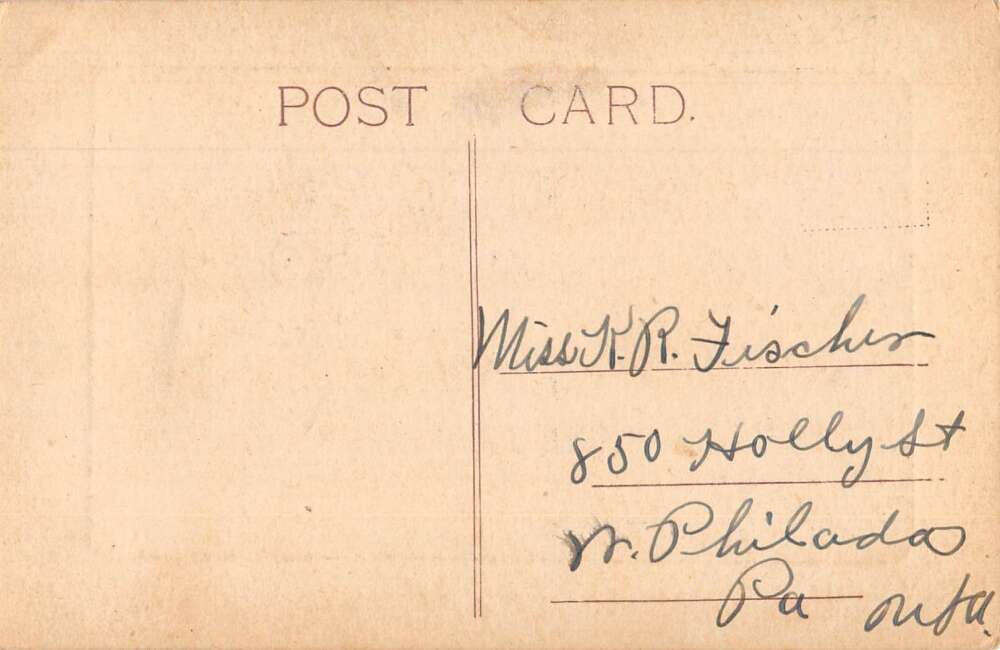 POST CARD.
Miss K. R. Fischer
850 Holly St
W. Philada
Pa